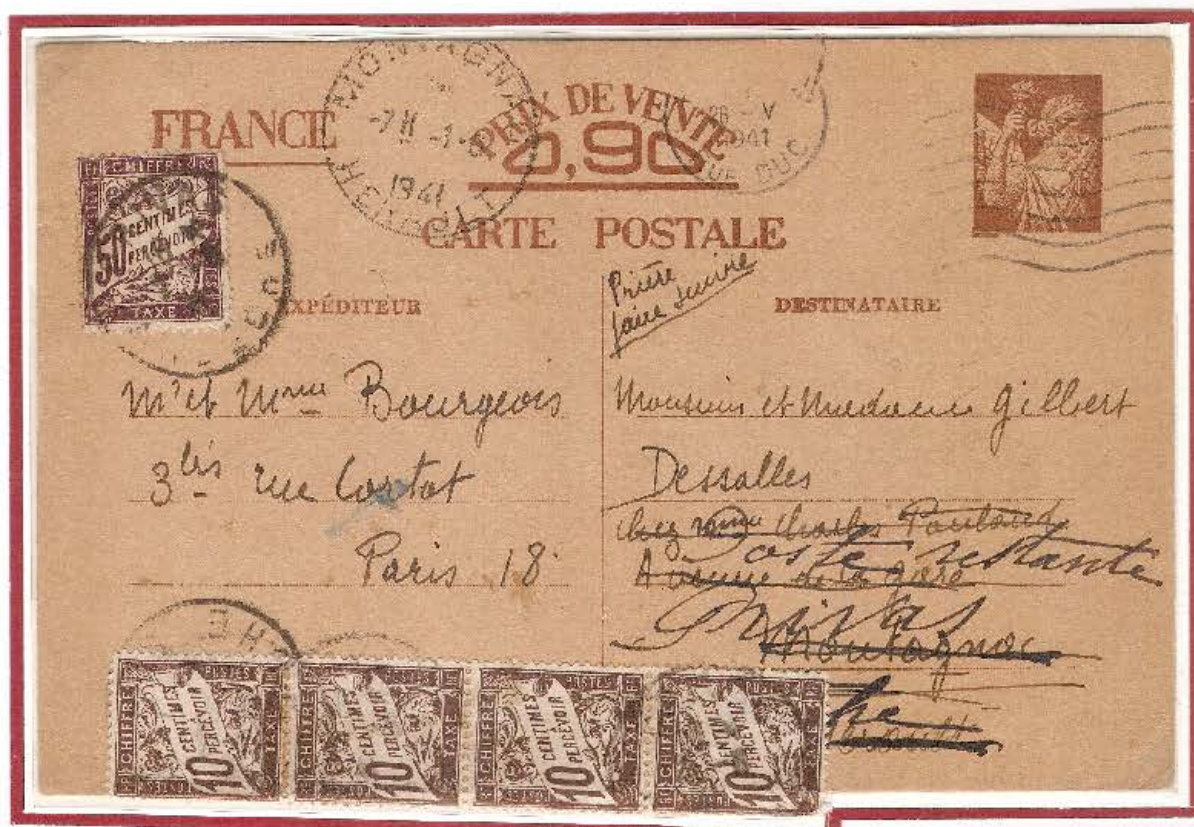 FRANCE
PRIX DE VENTE
0,90
CARTE POSTALE
MONTAGNAC
-7 II
1941
HERAULT
1941
DUC
CHIFFRE
50 CENTIMES
A PERCEVOIR
TAXE
EXPÉDITEUR
Mr et Mme Bourgeois
3 bis rue Cortot
Paris 18
Prière
faire suivre
DESTINATAIRE
Monsieur et Madame Gilbert
Dessalles
chez Mme Charles
Poste restante
Avenue de la Gare
Privas
Montagnac
Hérault
POSTES
CHIFFRE
10 CENTIMES
PERCEVOIR
TAXE
POSTES
CHIFFRE
10 CENTIMES
PERCEVOIR
TAXE
POSTES
CHIFFRE
10 CENTIMES
PERCEVOIR
TAXE
POSTES
CHIFFRE
10 CENTIMES
PERCEVOIR
TAXE